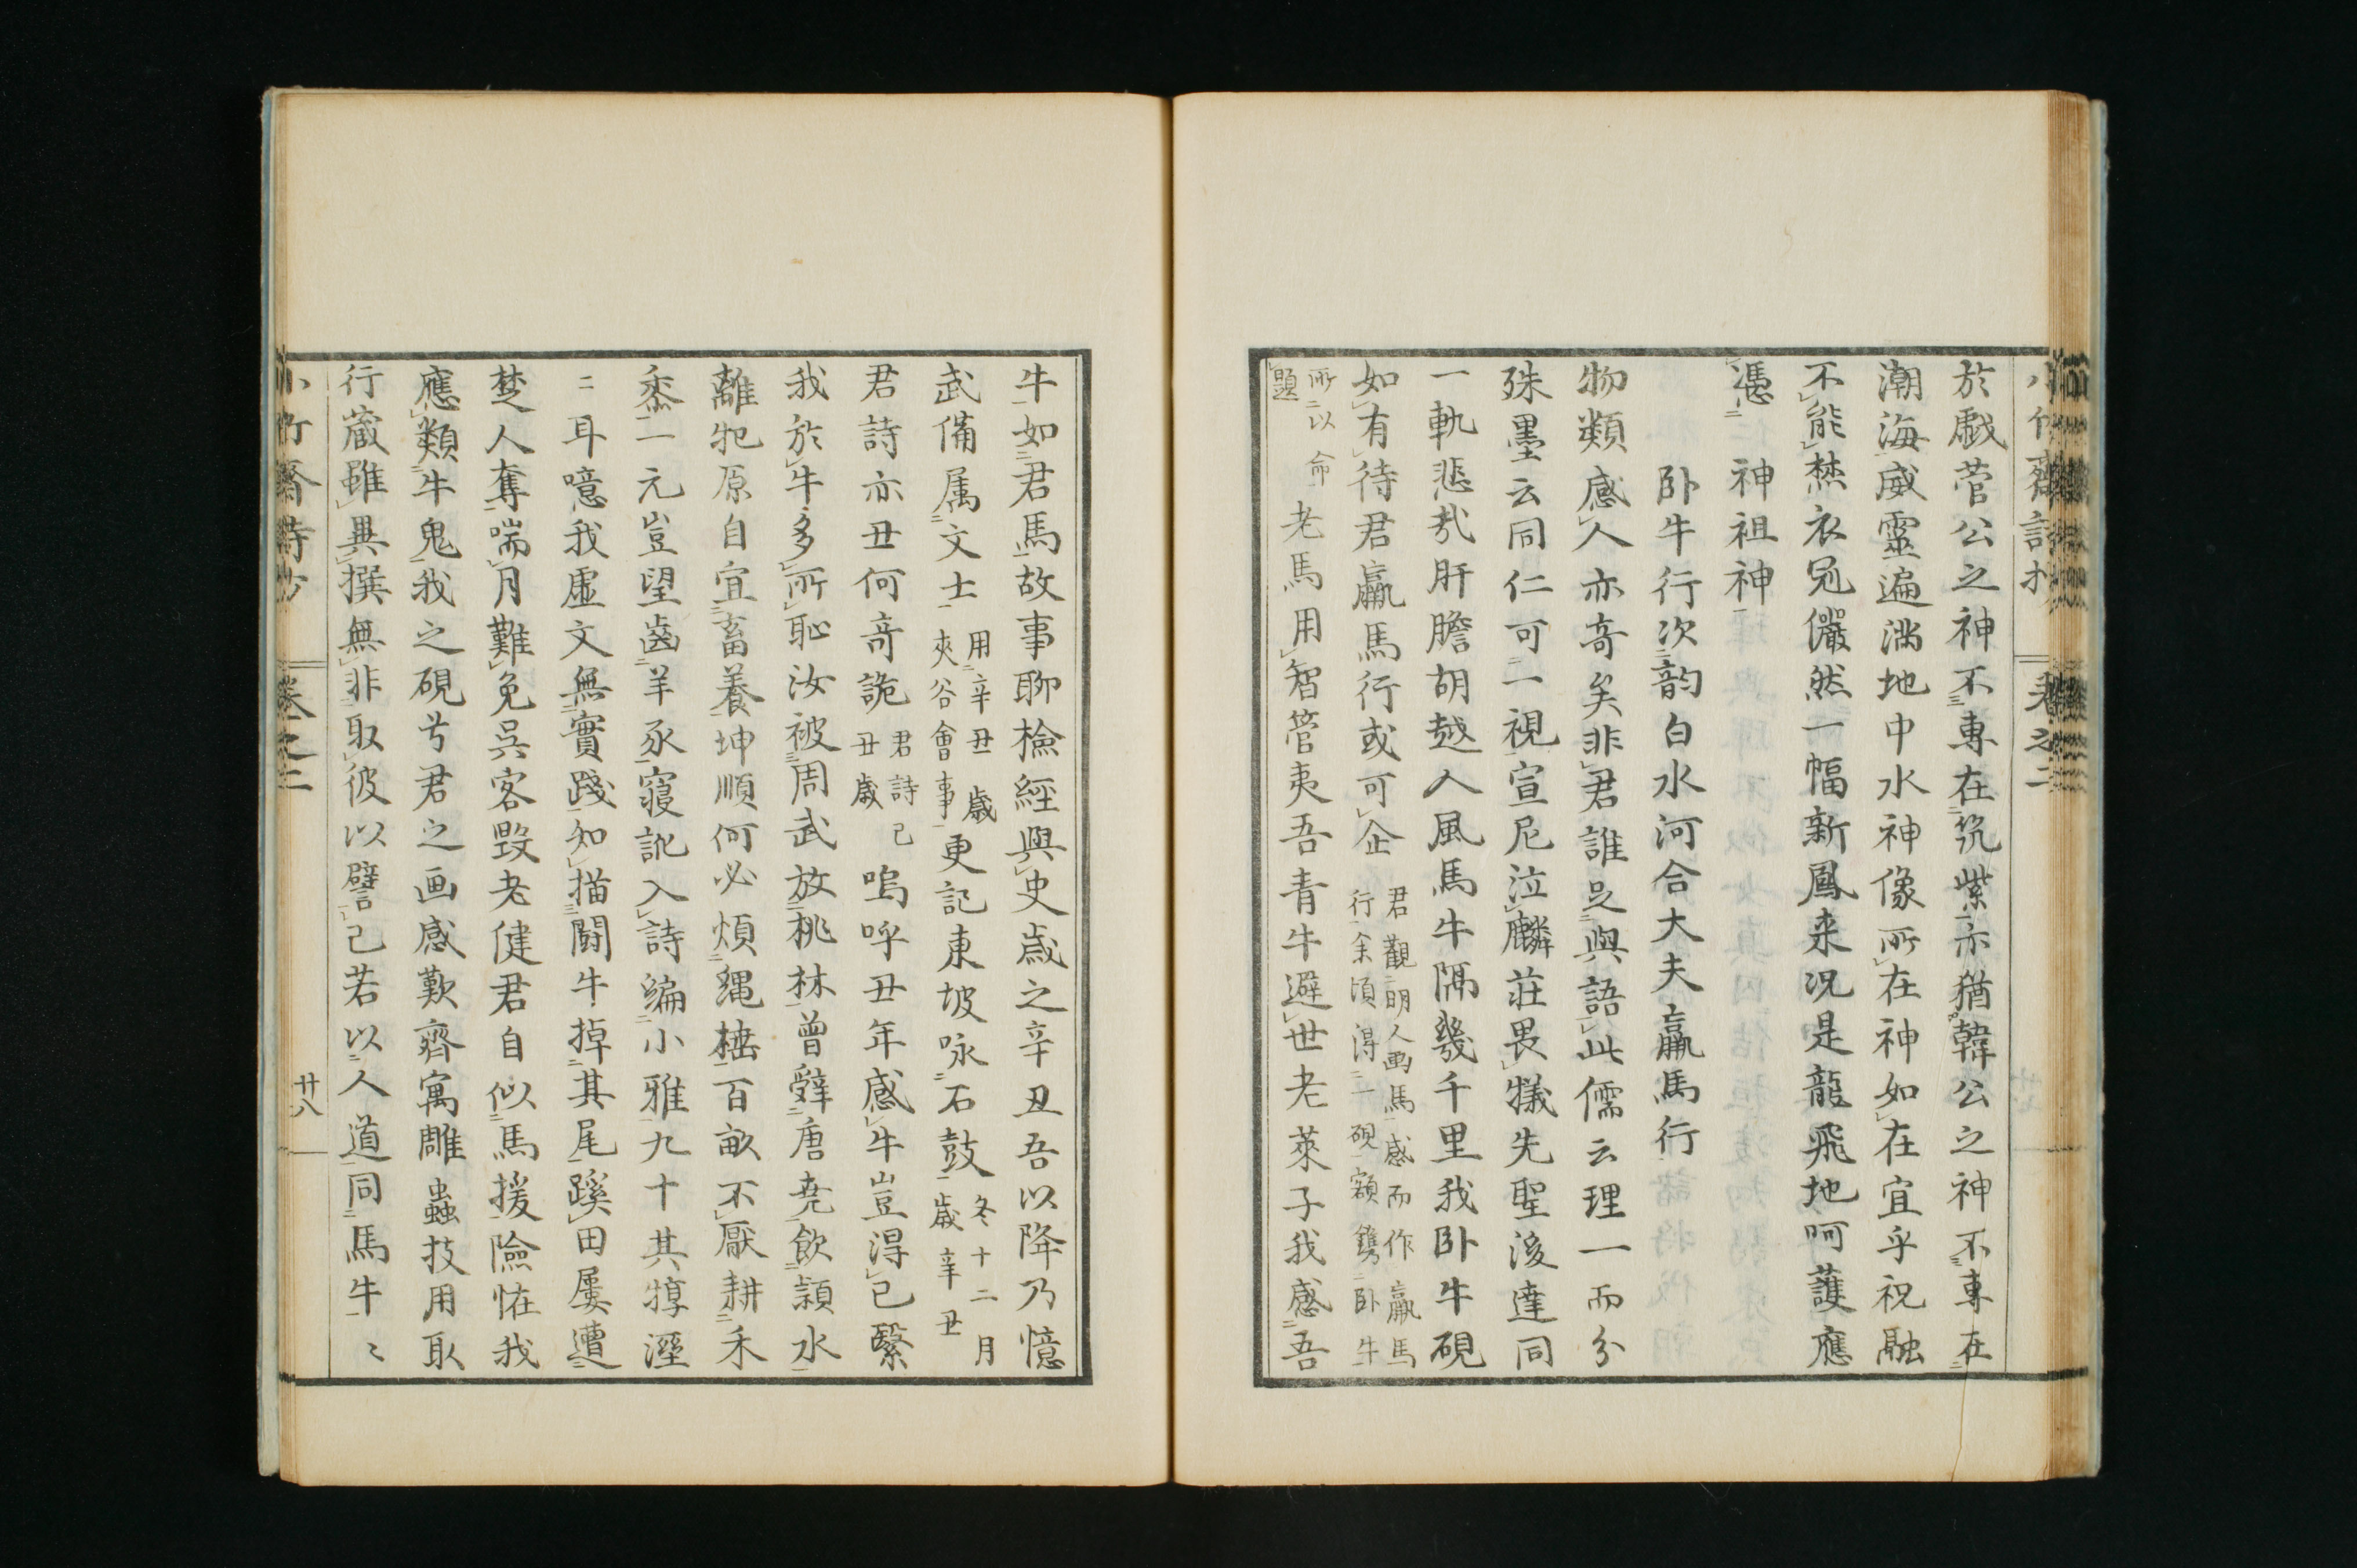 於戯菅公之神不專在筑紫亦猶韓公之神不專在
潮海威靈遍満地中水神像所在神如在宜乎祝融
不能焚衣冠儼然一幅新鳳来況是龍飛地呵護應
憑神祖神
臥牛行次韵白水河合大夫羸馬行
物類感人亦奇矣非君誰足與語此儒云理一而分
殊墨云同仁可一視宣尼泣麟莊畏犠先聖後達同
一軌悲哉肝膽胡越入風馬牛隔幾千里我臥牛硯
如有待君羸馬行或可企君觀明人画馬感而作羸馬行余頃得一硯額鐫臥牛
所以命題老馬用智管夷吾青牛避世老萊子我感吾
牛如君馬故事聊檢經與史歳之辛丑吾以降乃憶
武備属文士用辛丑歳夾谷會事更記東坡咏石鼓冬十二月歳辛丑
君詩亦丑何奇詭君詩己丑歳嗚呼丑年感牛豈得已繄
我於牛多所恥汝被周武放桃林曾辭唐堯飲潁水
離牝原自宜畜養坤順何必煩縄棰百畝不厭耕禾
黍一元豈望齒羊豕寢訛入詩編小雅九十其犉溼
二耳噫我虚文無實踐知描闘牛掉其尾蹊田屡遭
楚人奪喘月難免呉客毀老健君自似馬援險怪我
應類牛鬼我之硯兮君之画感歎齊寓雕蟲技用取
行蔵雖異撰無非取彼以譬己若以人道同馬牛〻
小竹齋詩抄
卷之二
廿八